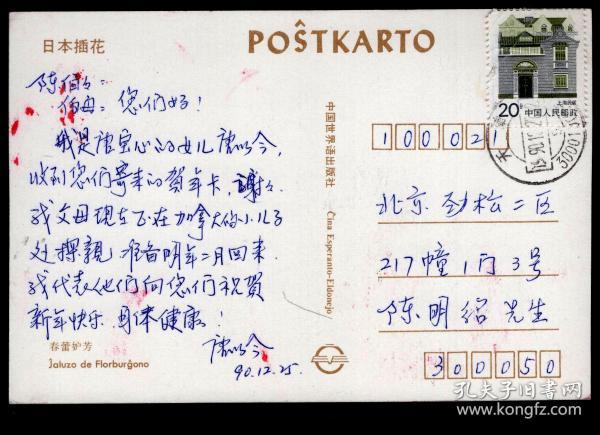 日本插花
POŜTKARTO
陈伯伯:
伯母: 您们好!
我是唐宝心的女儿唐以今,
收到您们寄来的贺年卡, 谢谢
我父母现在正在加拿大的小儿子
处探親, 准备明年二月回来
我代表他们向您们祝贺
新年快乐 身体健康!
唐以今
90.12.25.
春蕾妒芳
Ĵaluzo de Florburĝono
中国世界语出版社
Ĉina Esperanto-Eldonejo
20分
上海民居
中国人民邮政
100021
北京 劲松二区
217幢1门3号
陈明绍先生
300050
孔夫子旧书网
www.kongfz.com